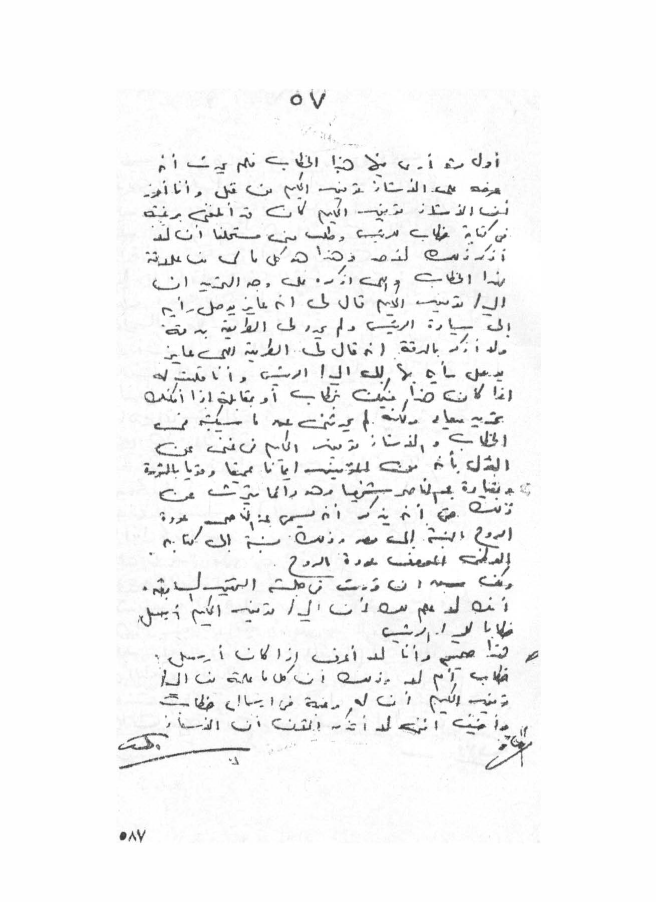 ٥٧
أول مرة أرى فيها هذا الخطاب فلم يحدث أنه
عرضه على الأستاذ توفيق الحكيم من قبل وأنا أقرر
أن الأستاذ توفيق الحكيم كان قد أبلغنى برغبته
فى كتابة خطاب للرئيس وطلب منى مستحلفا أن لا
أذكر ذلك لأحد وهذا هو كل ما لى من علاقة
بهذا الخطاب والذى أذكره على وجه التحديد ان
السيد/ توفيق الحكيم قال لى انه عايز يوصل رأيه
إلى سيادة الرئيس ولم يحدد لى الطريقة بدقة
ولا أذكر بالدقة انه قال لى الطريقة اللى عايز
يوصل رأيه بها للسيد الرئيس وأنا قلت له
اذا كان ممكن خطاب أو مقابلة إذا أمكنك
تحديد ميعاد ولكنه لم يحدثنى عن ما سيكتبه فى
الخطاب والأستاذ توفيق الحكيم فى غنى عن
القول بأنه من المؤمنين إيمانا عميقا وقويا بالثورة
وبقيادة عبد الناصر وهو دائما يتحدث عن
ذلك حتى أنه يذكر أنه يسمى عبد الناصر عودة
الروح الى مصر وذلك نسبة الى كتابه
المعروف عودة الروح
أنك لا علم لك أن السيد/ توفيق الحكيم أرسل
خطابا للسيد الرئيس
هذا صحيح وأنا لا أعرف إذا كان أرسل
خطاب أم لا وذلك أن كل ما علمته من السيد/
توفيق الحكيم أن له رغبة فى ارسال خطاب
وأضيف أننى لا أتذكر الآن أن الأستاذ
٥٨٧